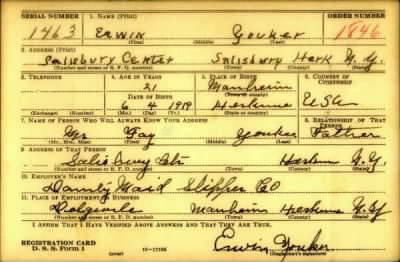 SERIAL NUMBER 1. NAME (Print) ORDER NUMBER
1463 Erwin Youker 1846
(First) (Middle) (Last)
2. ADDRESS (Print)
Salisbury Center Salisbury Herk N.Y.
(Number and street or R. F. D. number) (Town) (County) (State)
3. TELEPHONE 4. AGE IN YEARS 5. PLACE OF BIRTH 6. COUNTRY OF CITIZENSHIP
21 Manheim
DATE OF BIRTH (Town or county)
6 4 1919 Herkimer USA
(Exchange) (Number) (Mo.) (Day) (Yr.) (State or country)
7. NAME OF PERSON WHO WILL ALWAYS KNOW YOUR ADDRESS 8. RELATIONSHIP OF THAT PERSON
Mr Fay Youker Father
(Mr., Mrs., Miss) (First) (Middle) (Last)
9. ADDRESS OF THAT PERSON
Salisbury Ctr Herkimer N.Y.
(Number and street or R. F. D. number) (Town) (County) (State)
10. EMPLOYER'S NAME
Daniel Slipper Co
11. PLACE OF EMPLOYMENT OR BUSINESS
Dolgeville Manheim Herkimer N.Y.
(Number and street or R. F. D. number) (Town) (County) (State)
I AFFIRM THAT I HAVE VERIFIED ABOVE ANSWERS AND THAT THEY ARE TRUE.
REGISTRATION CARD
D. S. S. Form 1 (over) 16—17105 Erwin Youker
(Registrant's signature)